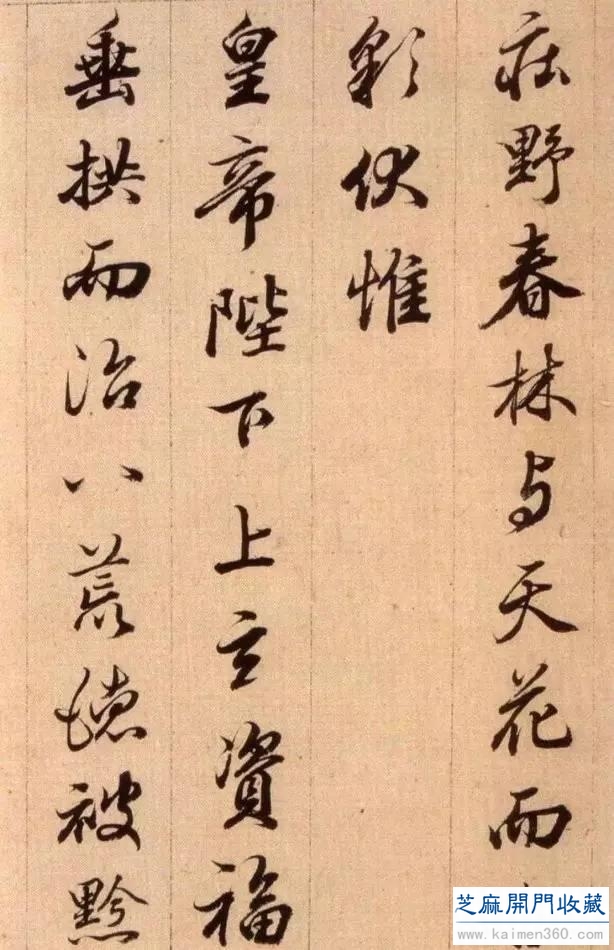 庄野春林与天花而
彩伏惟
皇帝陛下上玄資福
垂拱而治八荒德被黔
芝麻開門收藏
www.kaimen360.com